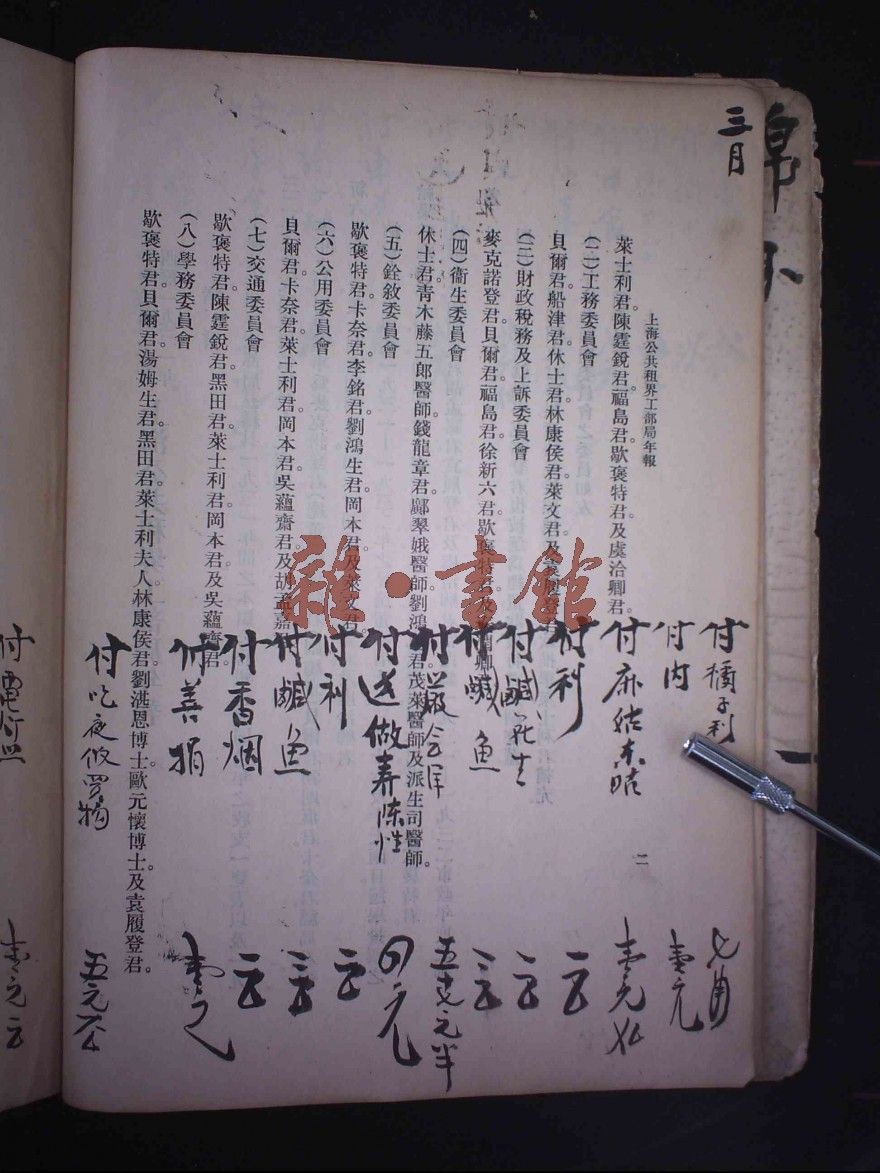 三月
上海公共租界工部局年報
萊士利君。陳霆銳君。福島君。歇褒特君。及虞洽卿君。
(二)工務委員會
貝爾君。船津君。休士君。林康侯君。萊文君。及袁履登君
(三)財政稅務及上訴委員會
麥克諾登君。貝爾君。福島君。徐新六君。歇褒特君。及
(四)衞生委員會
休士君。青木藤五郎醫師。錢龍章君。鄺翠娥醫師。劉鴻 君。茂萊醫師。及派生司醫師。
(五)銓敘委員會
歇褒特君。卡奈君。李銘君。劉鴻生君。岡本君。及萊文君
(六)公用委員會
貝爾君。卡奈君。萊士利君。岡本君。吳蘊齋君。及胡孟嘉
(七)交通委員會
歇褒特君。陳霆銳君。黑田君。萊士利君。岡本君。及吳蘊齋君
(八)學務委員會
歇褒特君。貝爾君。湯姆生君。黑田君。萊士利夫人。林康侯君。劉湛恩博士。歐元懷博士。及袁履登君。
二
雜·書館
付橘子利
付內 壹元
付利
付鹹花生
付鹹魚
付送做壽 四元
付利
付鹹魚
付香烟
付善捐
付吃夜飯買物
付電灯